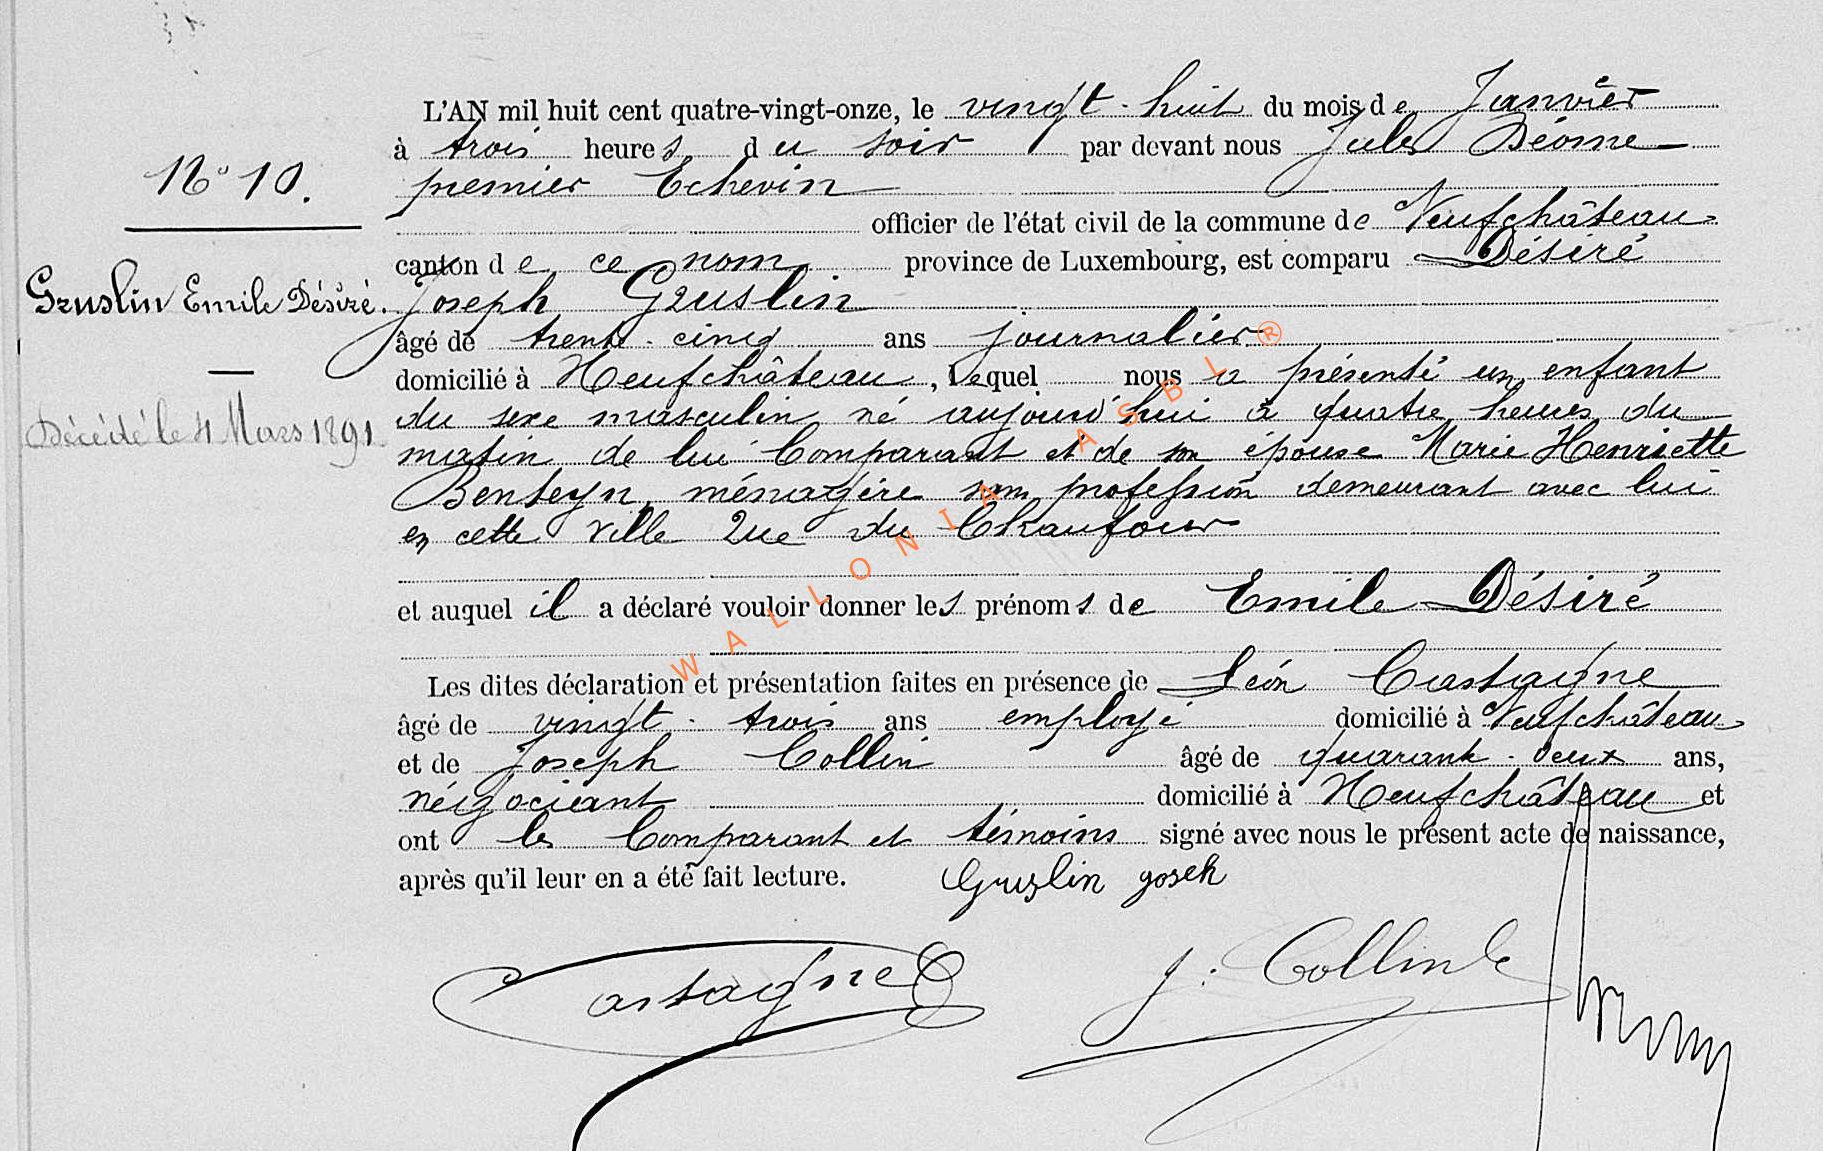 L'AN mil huit cent quatre-vingt-onze, le vingt-huit du mois de Janvier
à trois heures du soir par devant nous Jules Déome
premier Echevin
N° 10.
officier de l'état civil de la commune de Neufchâteau
canton de ce nom province de Luxembourg, est comparu Désiré
Gruslin Emile Désiré.
Joseph Gruslin
âgé de trente-cinq ans journalier
domicilié à Neufchâteau, lequel nous a présenté un enfant
du sexe masculin né aujourd'hui à quatre heures du
Décédé le 4 Mars 1891
matin de lui Comparant et de son épouse Marie Henriette
Benteyn, ménagère sans profession demeurant avec lui
en cette ville rue du Chaufour
et auquel il a déclaré vouloir donner les prénoms de Emile Désiré
WALLONIA ASBL ®
Les dites déclaration et présentation faites en présence de Léon Castagne
âgé de vingt-trois ans employé domicilié à Neufchâteau
et de Joseph Collin âgé de quarante-deux ans,
négociant domicilié à Neufchâteau et
ont les Comparant et témoins signé avec nous le présent acte de naissance,
après qu'il leur en a été fait lecture. Gruslin joseh
Castagne J. Collin